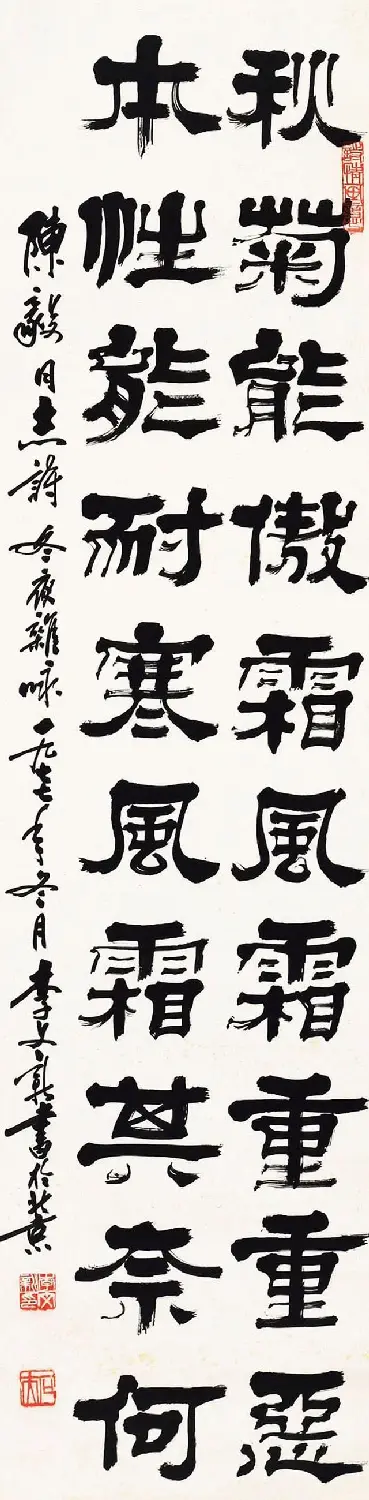 秋菊能傲霜風霜重重惡
本性能耐寒風霜其奈何
陳毅同志詩冬夜雜咏一九七七年冬月李文新書於北京